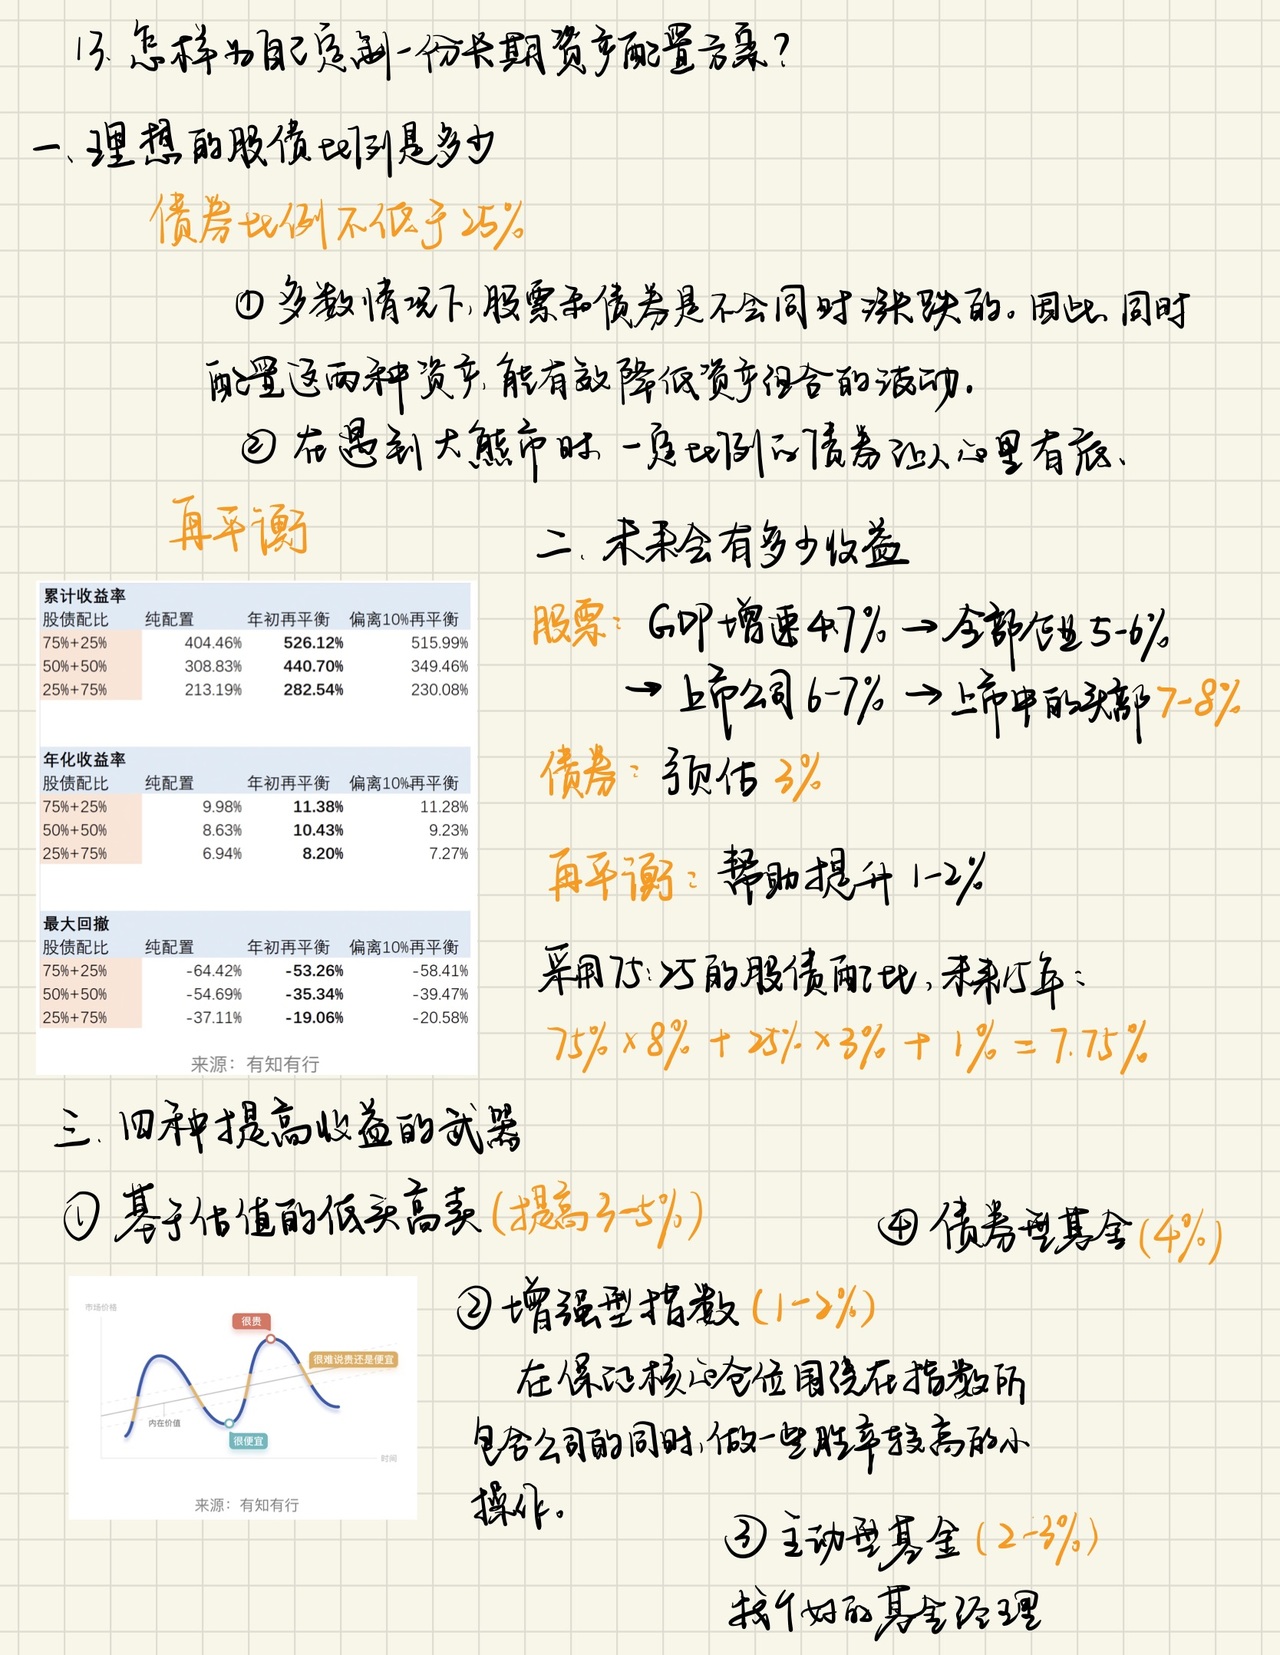 13. 怎样为自己定制一份长期资产配置方案？
一、理想的股债比例是多少
债券比例不低于25%
① 多数情况下，股票和债券是不会同时涨跌的。因此，同时
配置这两种资产，能有效降低资产组合的波动。
② 在遇到大熊市时，一定比例的债券让人心里有底、
再平衡
累计收益率
股债配比 纯配置 年初再平衡 偏离10%再平衡
75%+25% 404.46% 526.12% 515.99%
50%+50% 308.83% 440.70% 349.46%
25%+75% 213.19% 282.54% 230.08%
年化收益率
股债配比 纯配置 年初再平衡 偏离10%再平衡
75%+25% 9.98% 11.38% 11.28%
50%+50% 8.63% 10.43% 9.23%
25%+75% 6.94% 8.20% 7.27%
最大回撤
股债配比 纯配置 年初再平衡 偏离10%再平衡
75%+25% -64.42% -53.26% -58.41%
50%+50% -54.69% -35.34% -39.47%
25%+75% -37.11% -19.06% -20.58%
来源：有知有行
二、未来会有多少收益
股票：GDP增速4.7% → 全部企业5-6%
→ 上市公司6-7% → 上市中的头部7-8%
债券：预估3%
再平衡：帮助提升1-2%
采用75:25的股债配比，未来15年：
75%×8% + 25%×3% + 1% = 7.75%
三、四种提高收益的武器
① 基于估值的低买高卖（提高3-5%）
市场价格
很贵
很难说贵还是便宜
内在价值
很便宜
时间
来源：有知有行
② 增强型指数（1-2%）
在保证核心仓位围绕在指数所
包含公司的同时，做一些胜率较高的小
操作。
③ 主动型基金（2-3%）
找个好的基金经理
④ 债券型基金（4%）